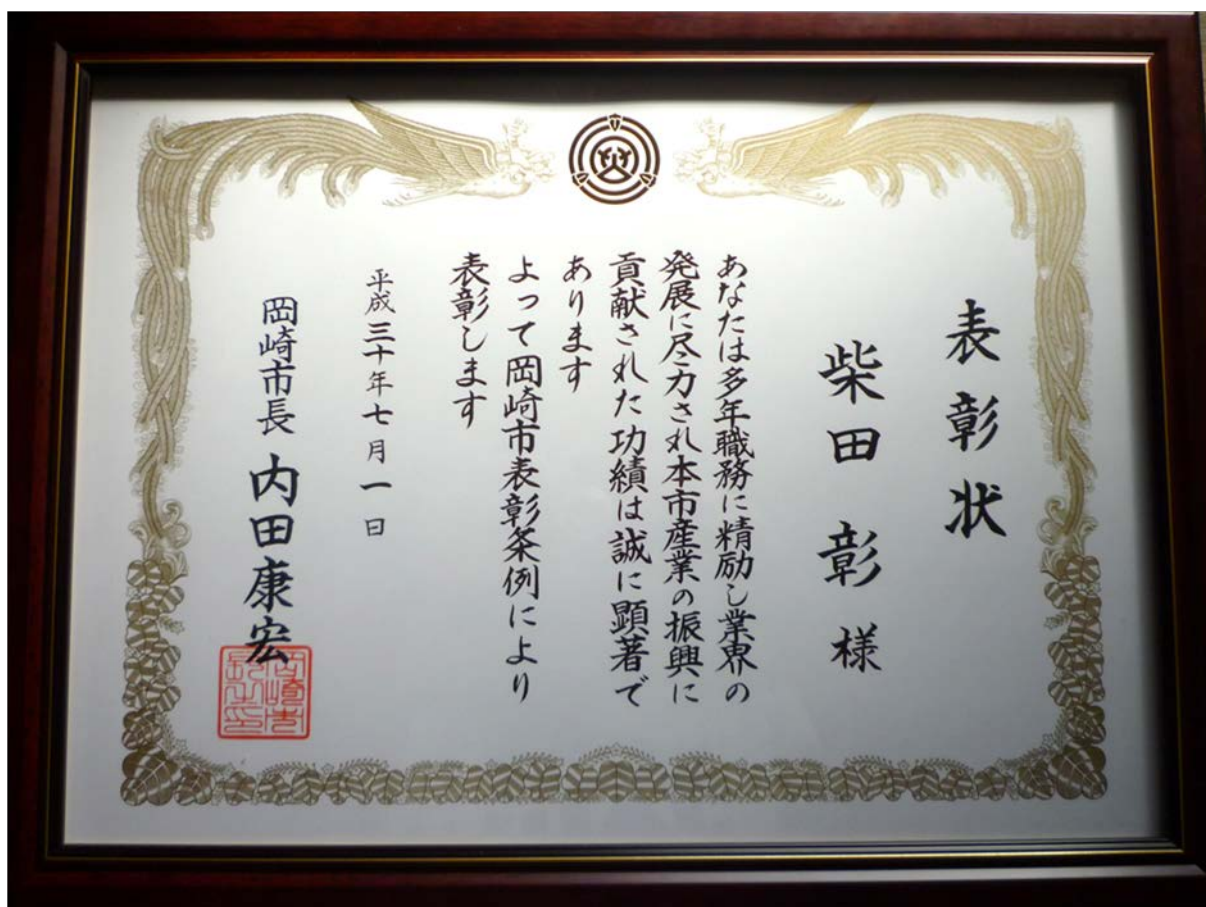 表彰状
柴田彰様
あなたは多年職務に精励し業界の
発展に尽力され本市産業の振興に
貢献された功績は誠に顕著で
あります
よって岡崎市表彰条例により
表彰します
平成三十年七月一日
岡崎市長 内田康宏
岡崎市長之印